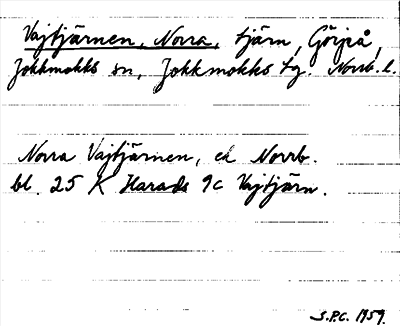 Vajtjärnen, Norra, tjärn, Görjeå,
Jokkmokks sn, Jokkmokks tg. Norrb. l.
Norra Vajtjärnen, ek Norrb.
bl. 25 K Harads 9c Vajtjärn.
S.P.C. 1959.